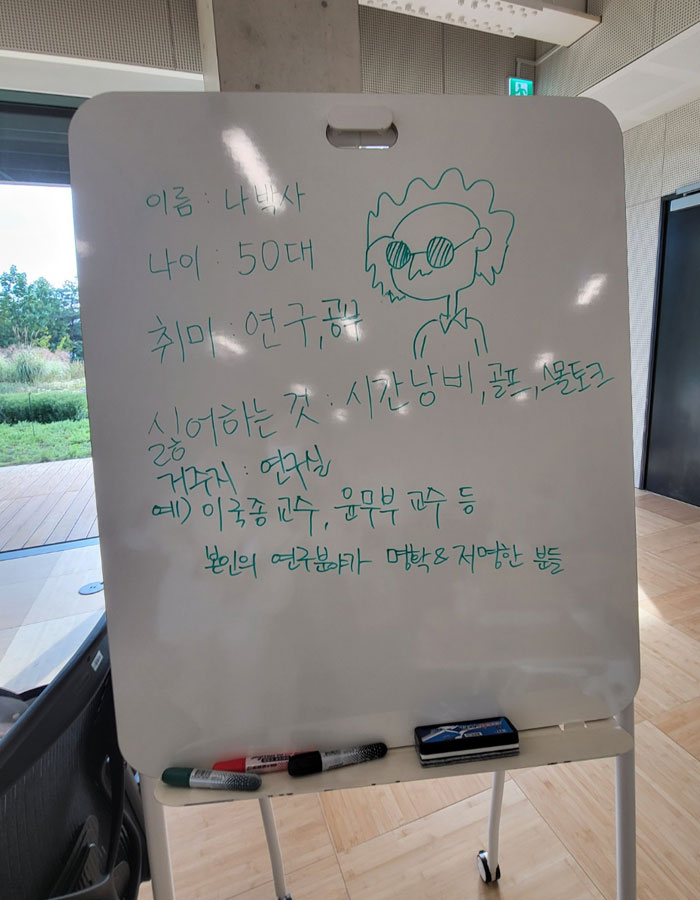 이름 : 나박사
나이 : 50대
취미 : 연구, 공부
싫어하는 것 : 시간낭비, 골프, 스몰토크
거주지 : 연구실
예) 이국종 교수, 윤무부 교수 등
본인의 연구분야가 명확 & 저명한 분들